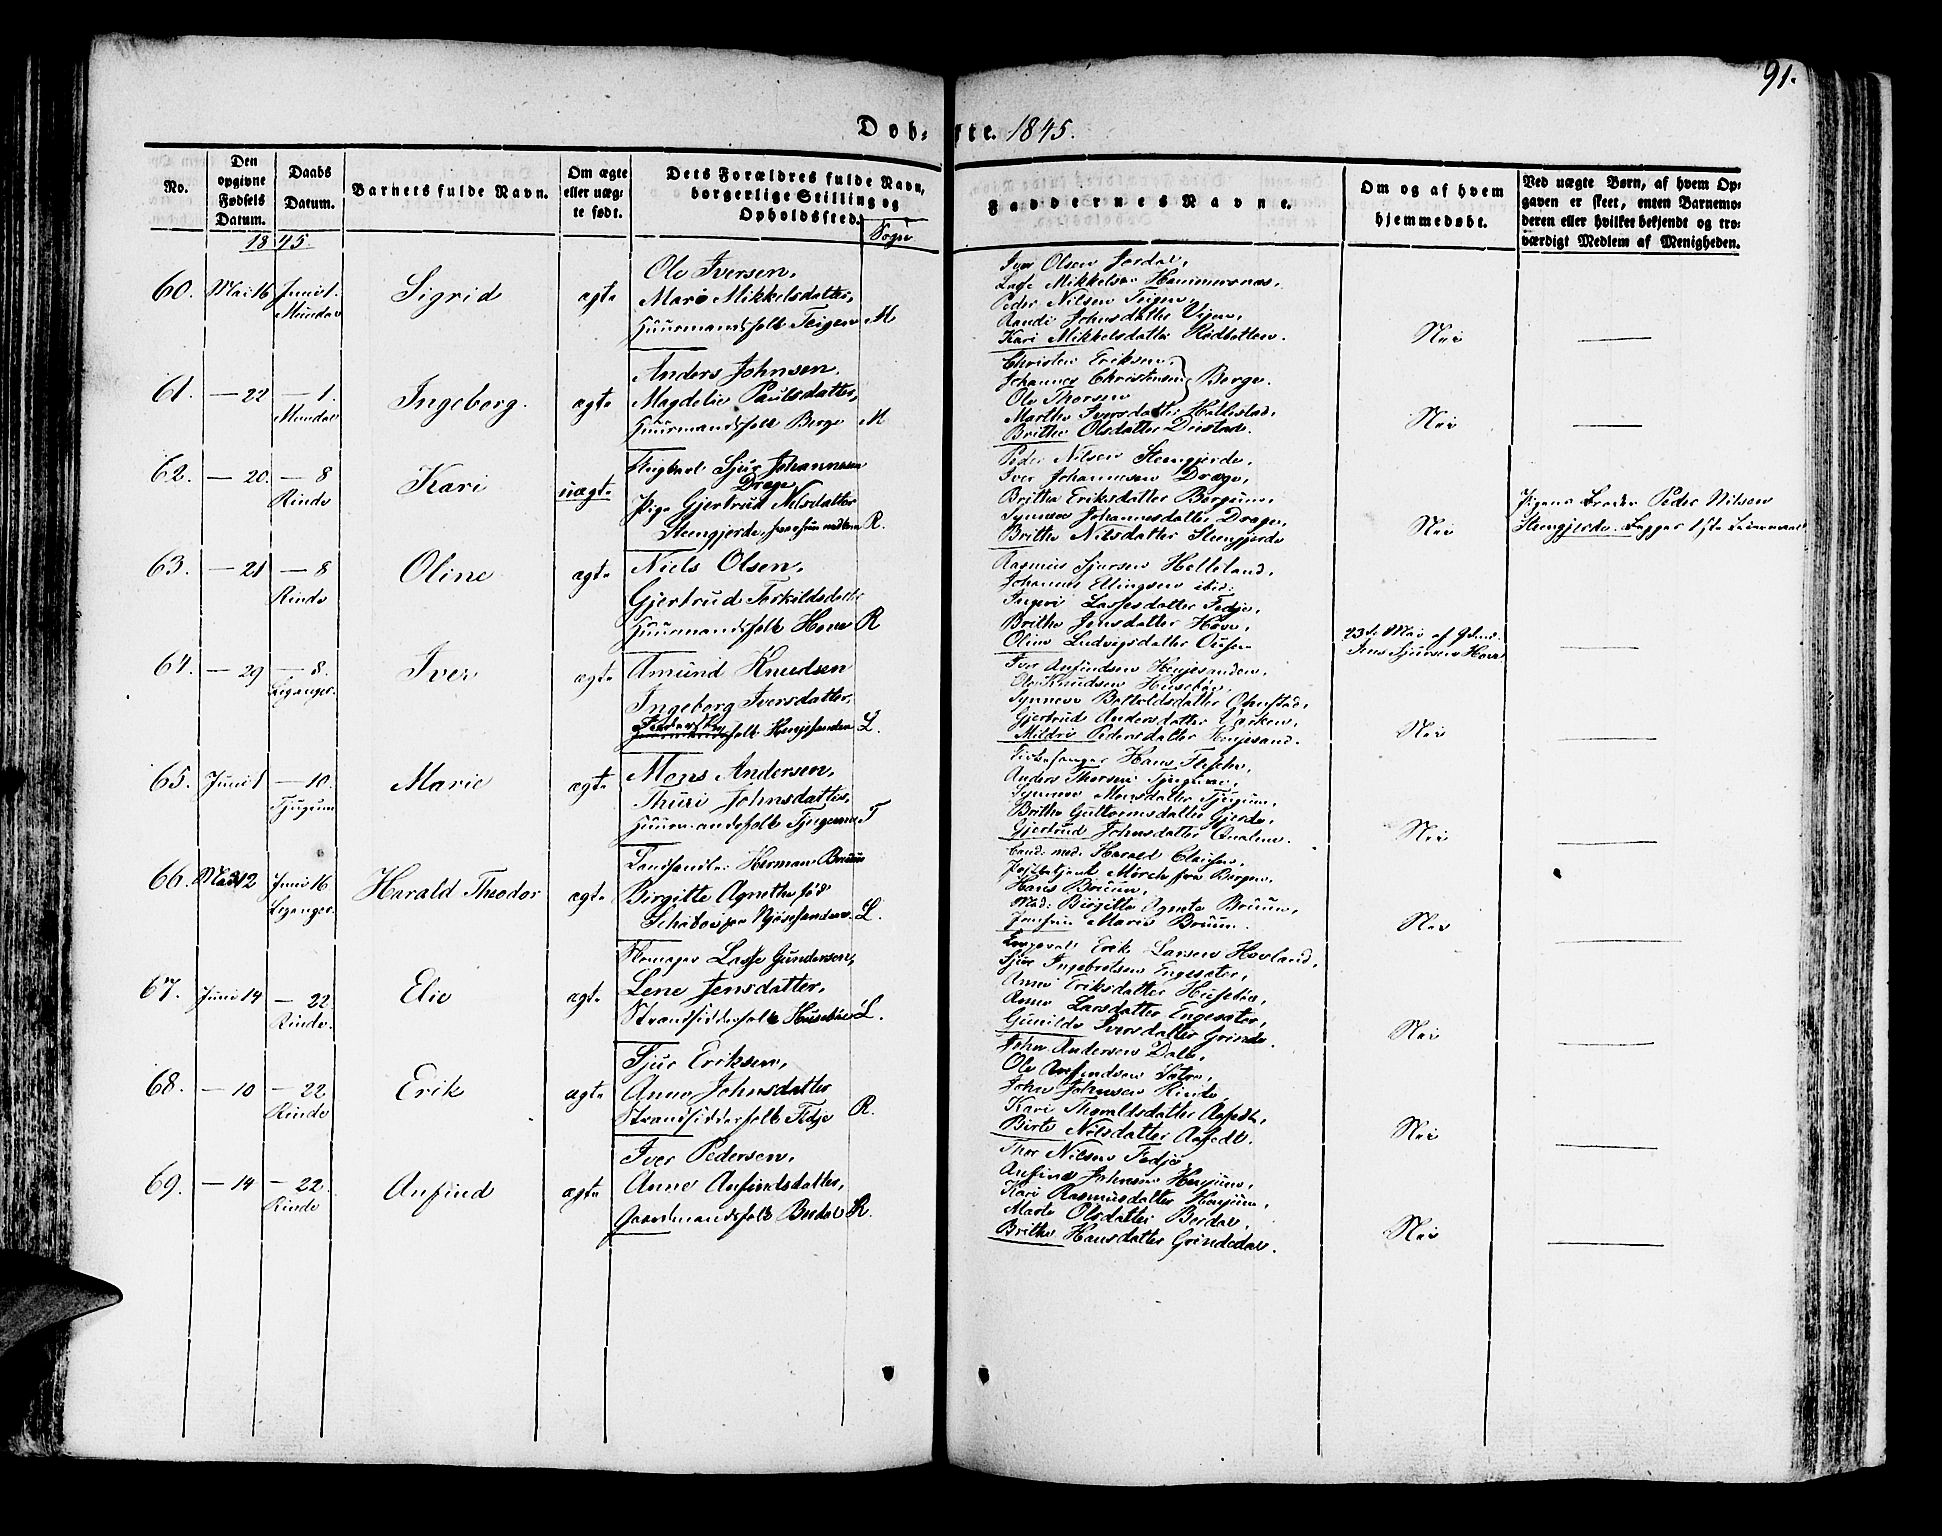 91.
Døb- te. 1845.
No.
Den opgivne Fødsels Datum.
Daabs Datum.
Barnets fulde Navn.
Om ægte eller uægte født.
Dets Forældres fulde Navn, borgerlige Stilling og Opholdssted.
Sogn
Faddernes Navne.
Om og af hvem hjemmedøbt.
Ved uægte Børn, af hvem Opgaven er skeet, enten Barnemoderen eller hvilket bekjendt og troværdigt Medlem af Menigheden.
1845.
60. Mai 16 Juni 1. Sigrid ægte
Ole Iversen,
Mari Mikkelsdatter,
Huusmandsfolk Teigen M
Iver Olsen Jordal,
Lasse Mikkelsen Hammersnæs,
Peder Nilsen Teigen,
Randi Johnsdatter Vigen,
Kari Mikkelsdatter
Nei
61. — 22 — 1. Ingeborg. ægte
Mundal
Anders Johnsen,
Magdeli Paulsdatter,
Huusmandsfolk Berge M
Christen Eriksen,
Johannes Christensen Berge.
Ole Thorsen
Martha Iversdatter Hellestad,
Britha Olsdatter
Nei
62. — 20. — 8 Kari uægte
Rinde
Ungkarl Sjur Johannesen
Drage
Pige Gjertrud Nilsdatter
Steengjerde, R.
Peder Nilsen Steengjerde,
Iver Johannesen Drage,
Britha Eriksdatter Bergum,
Synneve Johannesdatter Drage,
Britha Nilsdatter Steengjerde
Nei
Pigens Broder Peder Nilsen
Steengjerde. Begges 1ste Leiermaal
63. — 21 — 8 Oline ægte
Rinde
Niels Olsen,
Gjertrud Torkildsdatter
Huusmandsfolk Hove R
Rasmus Sjursen Helleland,
Johannes Ellingsen ibid:
Ingeri Lassesdatter Fedje,
Britha Jensdatter Hove,
Oline Ludvigsdatter
23de Mai af
Jens Sjursen Hove
64. — 29 — 8. Iver ægte
Leganger.
Amund Knudsen
Ingeborg Iversdatter,
Henjesanden L.
Iver Anfindsen Henjesanden,
Ole Knudsen Husebøe,
Synneve Botolvsdatter Ohnstad,
Gjertrud Andersdatter
Mildri Pedersdatter Henjesand.
Nei
65. Juni 1 — 10. Marie ægte
Tjugum
Mons Andersen,
Thuri Johnsdatter,
Huusmandsfolk Tjugum T
Hans
Anders Thorsen Tjugum,
Synneve Monsdatter Tjugum,
Britha Guttormsdatter Gjerde,
Gjertrud Johnsdatter Qvalem.
Nei
66. Mai 12 Juni 16 Harald Theodor ægte
Leganger.
Landhandler Herman Bruun
Birgitte Agnetha fød
L.
Cand: med: Harald Clausen,
Mørch fra Bergen,
Hans Bruun,
Mad: Birgitte Agnete Bruun,
Jomfru Marie Bruun.
Nei
67. Juni 14 — 22 Elie ægte
Rinde.
Skomager Lasse Gundersen,
Lene Jensdatter,
Strandsidderfolk Husebøe L.
Erik Larsen Hovland,
Sjur Ingebretsen Engesæter,
Anne Eriksdatter Husebøe,
Anne Larsdatter Engesæter,
Gunilde Iversdatter Grinde.
Nei
68. — 10 — 22 Erik ægte
Rinde
Sjur Eriksen,
Anne Johnsdatter
Strandsidderfolk Fedje R.
John Andersen Dale,
Ole Anfindsen
John Johnsen Rinde,
Kari Thoraldsdatter Aafedt,
Birte Nilsdatter Aafedt.
Nei
69. — 14 — 22. Anfind ægte
Rinde
Iver Pedersen,
Anne Anfindsdatter,
Gaardmandsfolk Berdal R.
Thor Nilsen Fedje
Anfind Johnsen Henjum,
Kari Rasmusdatter Henjum,
Marte Olsdatter Berdal,
Britha Hansdatter Grindedal.
Nei